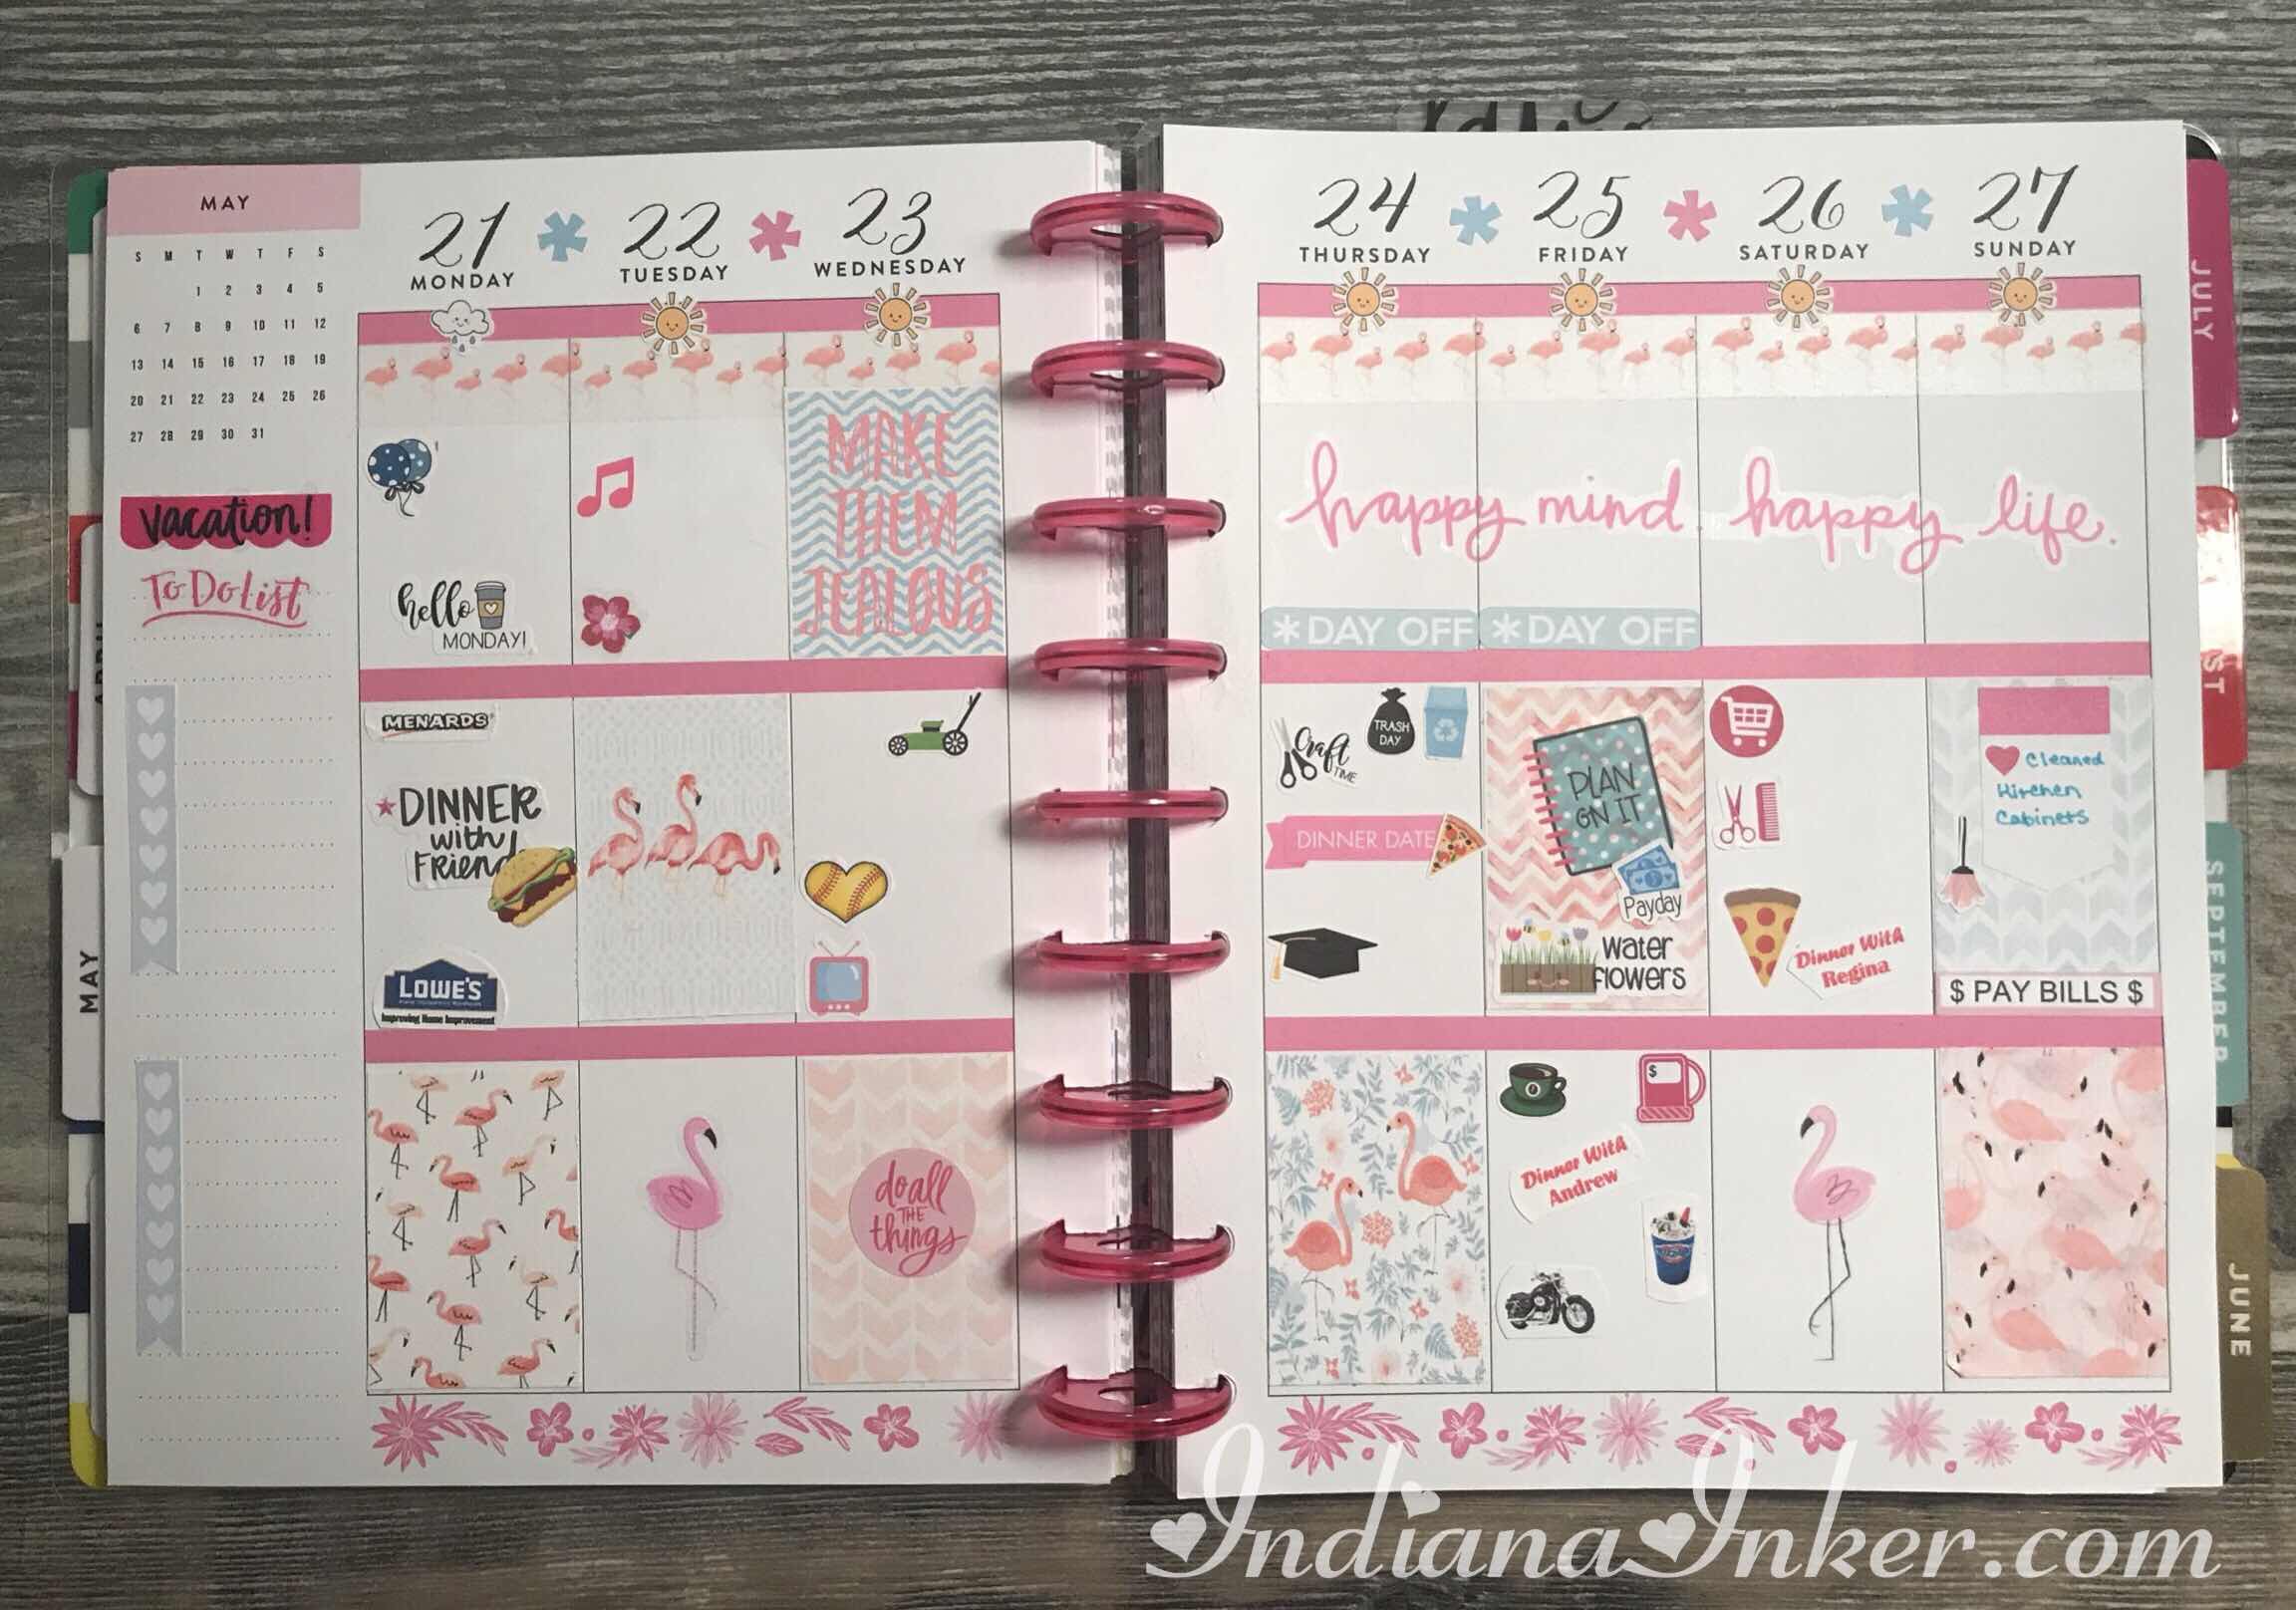 MAY
S M T W T F S
1 2 3 4 5
6 7 8 9 10 11 12
13 14 15 16 17 18 19
20 21 22 23 24 25 26
27 28 29 30 31
vacation!
To Do List
21
MONDAY
22
TUESDAY
23
WEDNESDAY
hello
MONDAY!
MAKE
THEM
JEALOUS
MENARDS
DINNER
with
Friend
LOWE'S
Improving Home Improvement
do all
THE
things
24
THURSDAY
25
FRIDAY
26
SATURDAY
27
SUNDAY
happy mind happy life.
*DAY OFF *DAY OFF
Craft
TIME
TRASH
DAY
DINNER DATE
PLAN
ON IT
Payday
Water
flowers
Dinner With
Regina
Cleaned
Kitchen
Cabinets
$ PAY BILLS $
$
Dinner With
Andrew
MAY
JULY
ST
SEPTEMBER
JUNE
IndianaInker.com